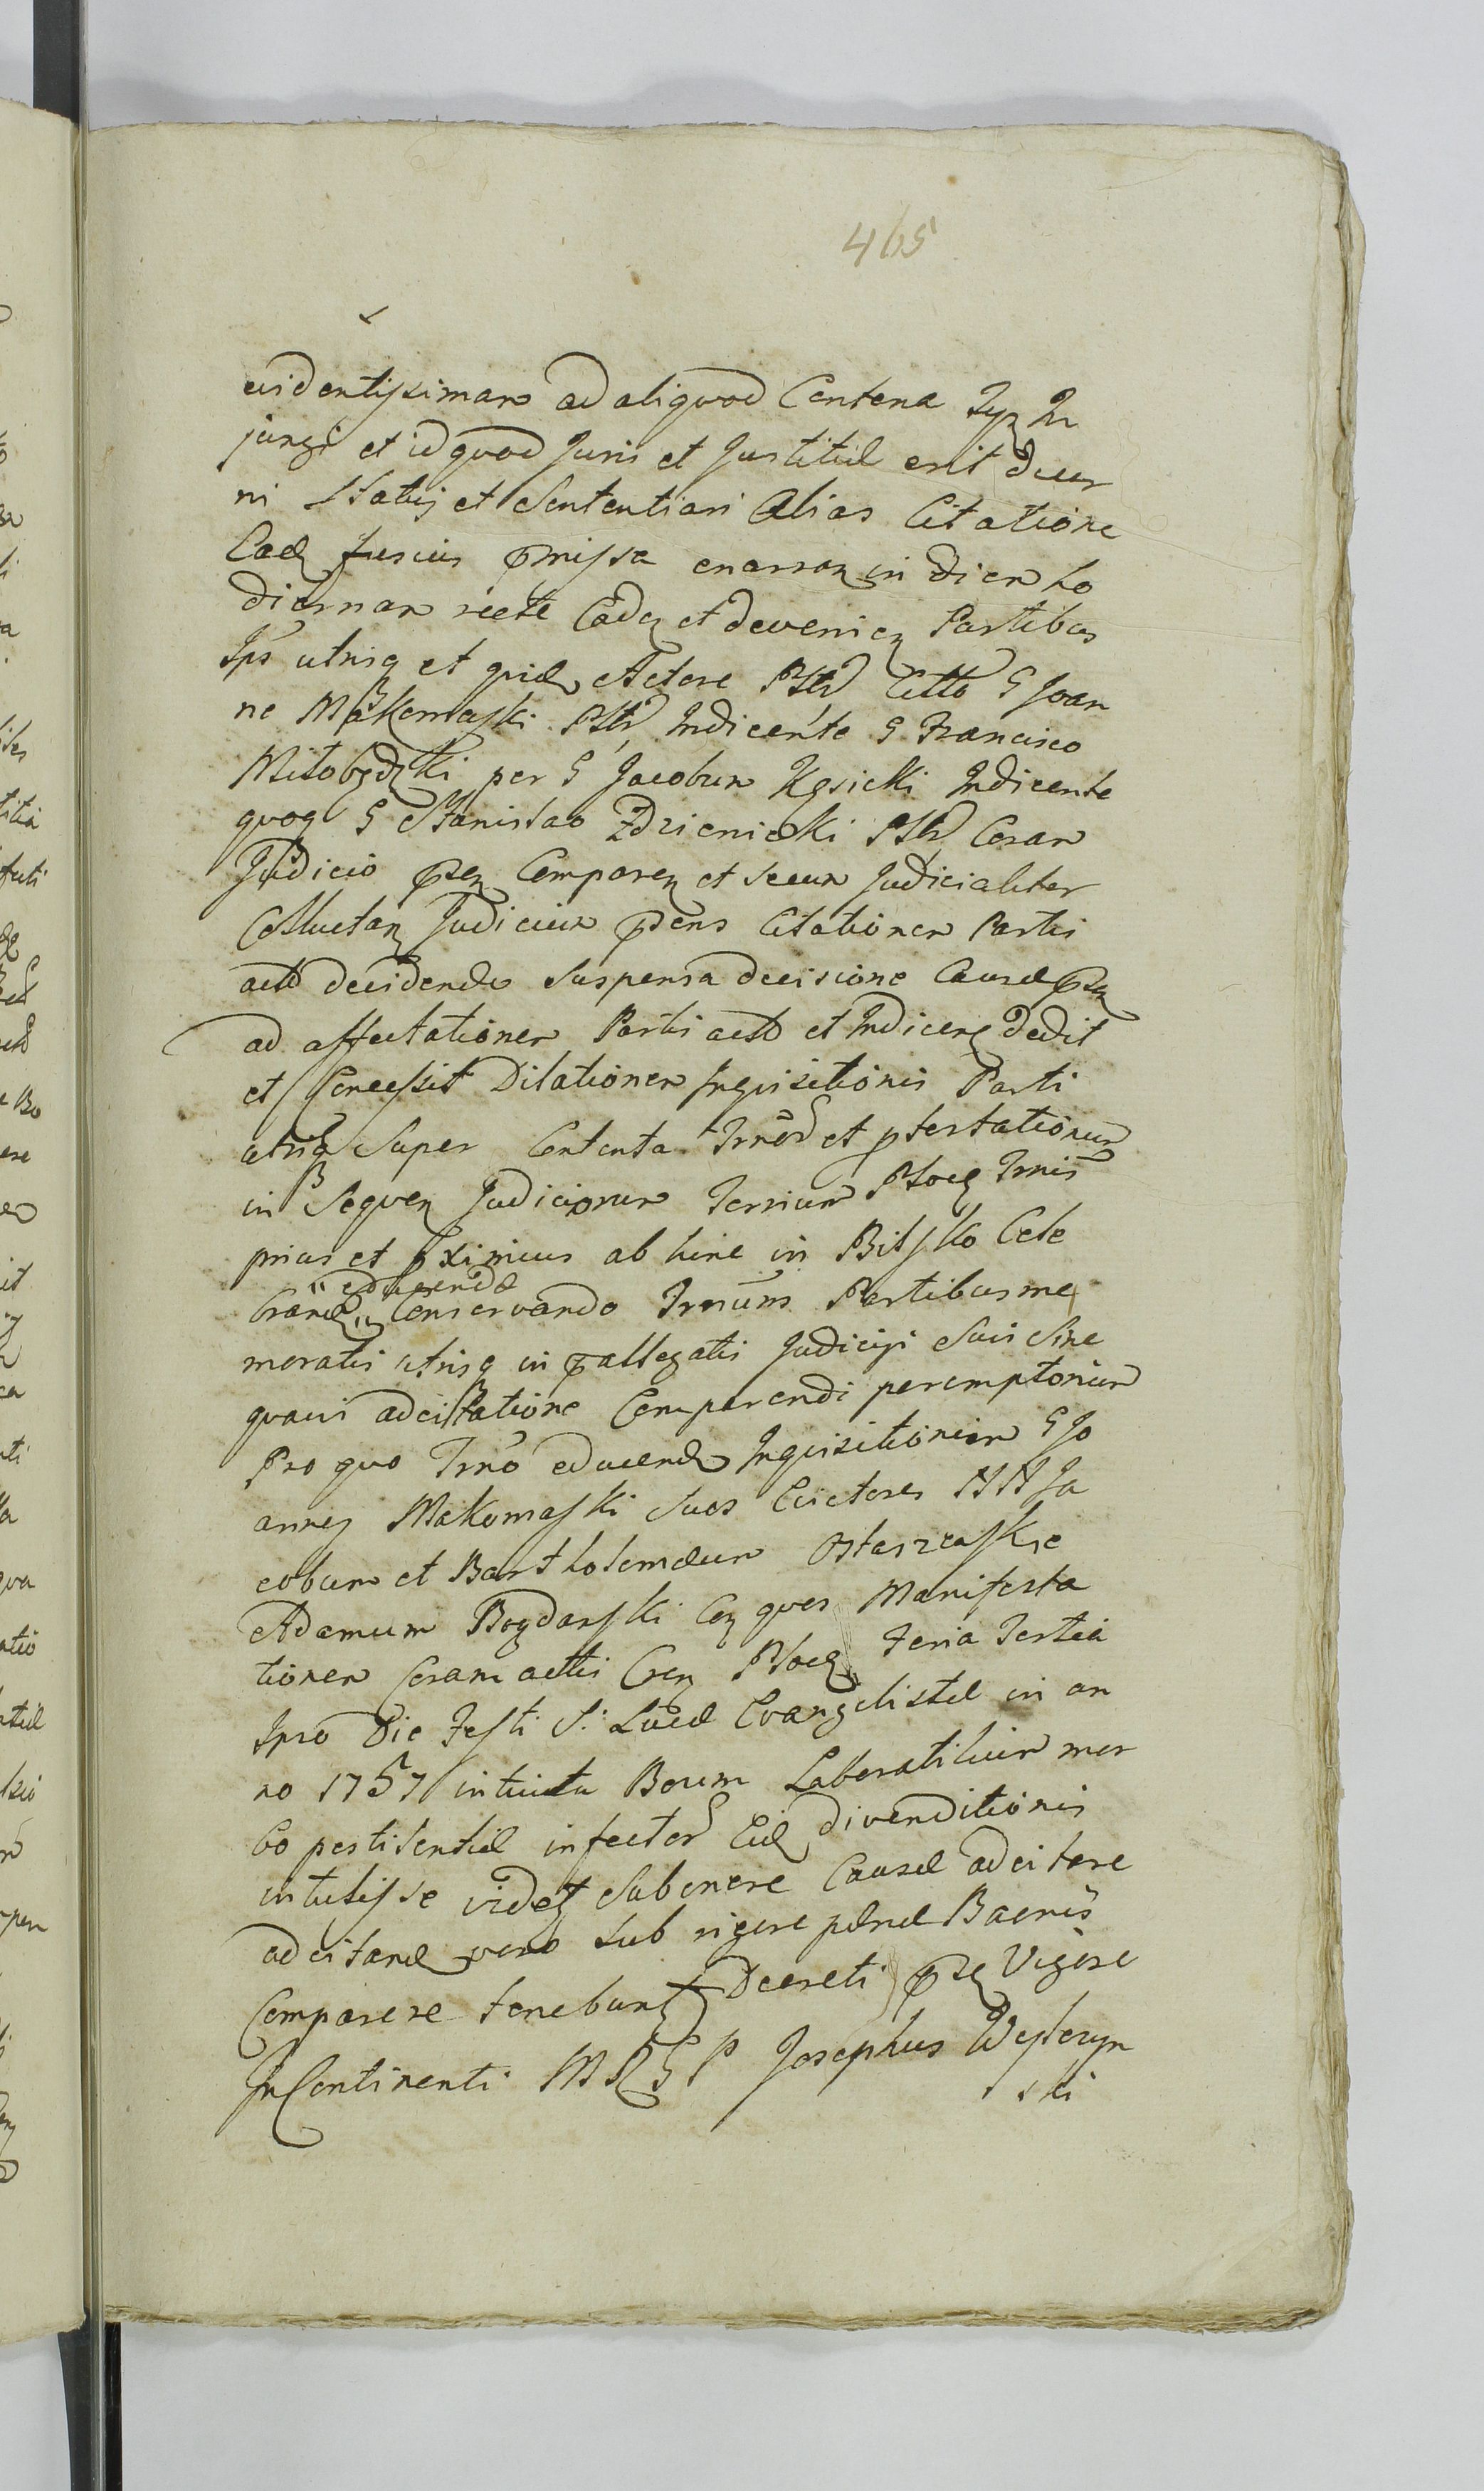 465
evidentissimam ad aliquod Centena
jungi et id quod Juris et Justitiæ erit decer
ni Statuj et Sententiari Alias Citatione
Eadz fusius pmissa enarranz in diem ho
diernam recte Cadez et devenien Partibus
Ips utrisq et quid Actore Citto G Joan
ne Makomaski Indicente G Francisco
Miłobędzki per G Jacobum Kęsicki Indicente
quoq G Stanislao Zdzienicki Coram
Judicio psen Comparen et secum Judicialiter
Colluctanz Judicium psens Citationem Partis
acto decidendo Suspensa decisione Causæ psen
ad affectationem Partis acto et Indicenz dedit
et Concessit Dilationem Inquisitionis Parti
utriq Super Contenta et ptestationum
in Sequen Judiciorum Terrium Ploc Trnis
prius et pximius ab hinc in Bilsko Cele
educenda
brand Conservando Trnum Partibus me
moratis utrisq in pallegatis Judicijs Suis Sine
quavis adcitatione Comparendi peremptorium
Pro quo Trno educend Inquisitionim G Jo
annes Makomaski Suos Evictores NN Ja
cobum et Bartholomæum Ostaszewskie
Adamum Bogdanski quos Manifesta
tionem Coram actis Cren Ploc Feria Tertia
Ipso Die Festi S. Lucæ Evangelistæ in an
no 1757 intuitu Boum Laboratilium mor
bo pestilentiæ infector divenditionis
intulisse videt Sub onere Causæ adcitare
adcitand vero sub rigore pænæ Bannis
Comparere tenebunt Decreti pse Vigore
In Continenti M P Josephus Wesseryn
ski